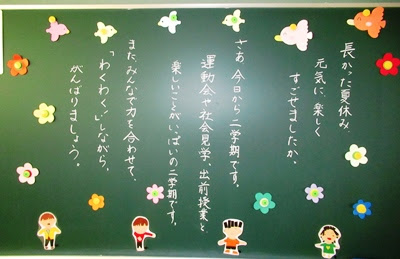 長かった夏休み、
元気に、楽しく
すごせましたか。
さあ、今日から二学期です。
運動会や社会見学、出前授業と
楽しいことがいっぱいの二学期です。
また、みんなで力を合わせて、
「わくわく!」しながら、
がんばりましょう。